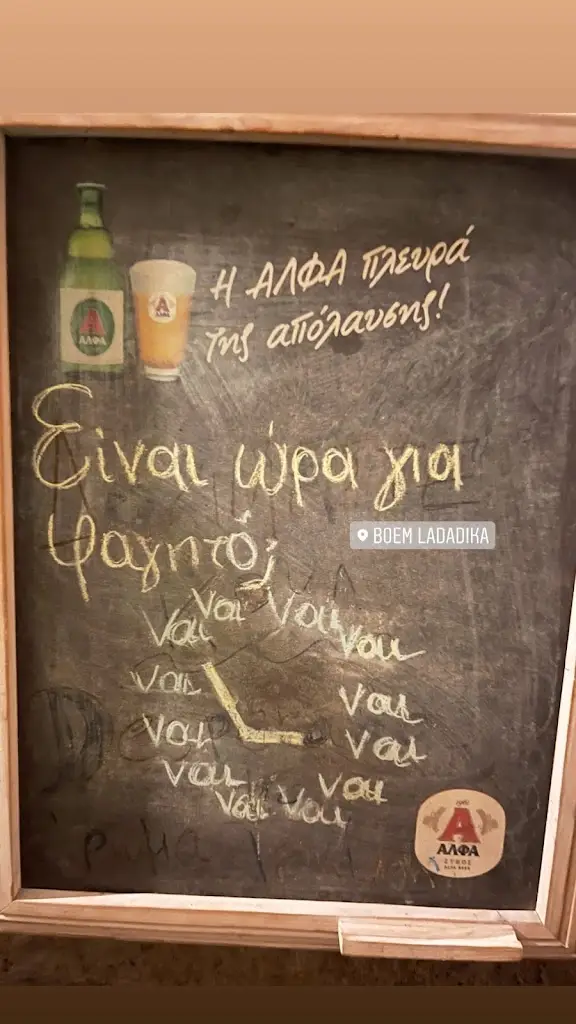 Η ΑΛΦΑ πλευρά
της απόλαυσης!
ΑΛΦΑ
ΑΛΦΑ
Είναι ώρα για
φαγητό;
BOEM LADADIKA
ναι ναι ναι ναι
ναι ναι
ναι ναι
ναι ναι
ναι ναι
ΑΛΦΑ